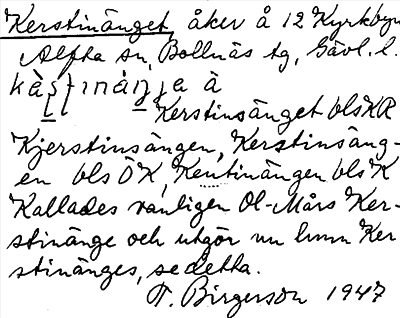 Kerstinänget åker å 12 Kyrkbyn
Alfta sn, Bollnäs tg, Gävl. l.
Kerstinsänget bls KR
Kjerstinsängen, Kerstinsäng-
en bls ÖK, Kentinängen bls K
Kallades vanligen Ol-Mårs Ker-
stinänge och utgör nu hmn Ker
stinänges, se detta.
T. Birgerson 1947